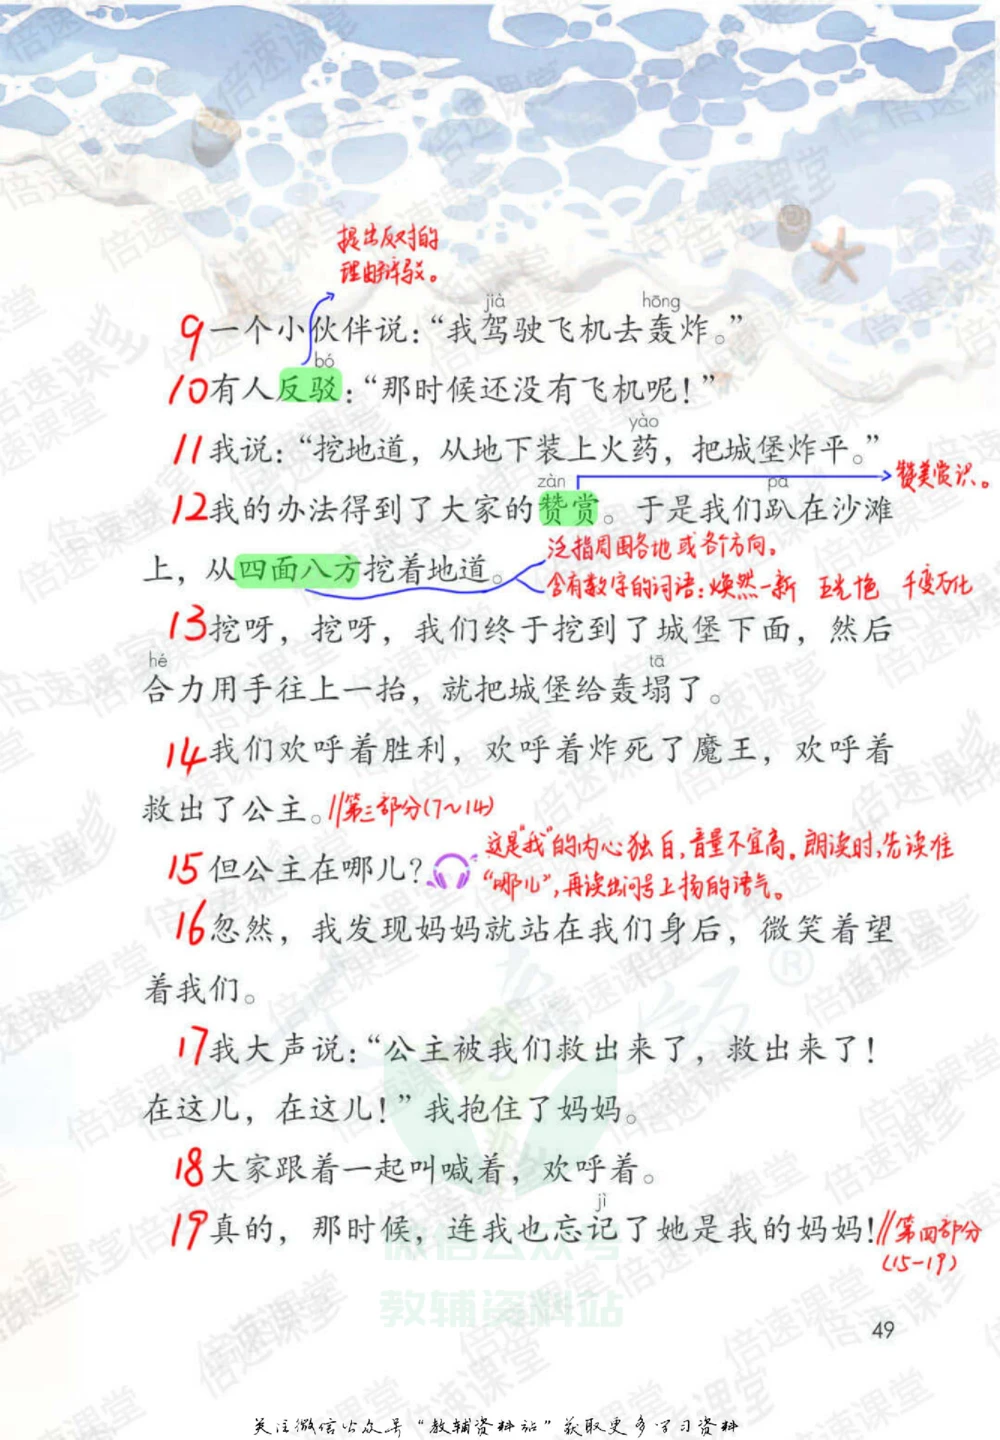 提出反对的
理由辩驳。
jià hōng
9一个小伙伴说：“我驾驶飞机去轰炸。”
bó
10有人反驳：“那时候还没有飞机呢！”
yào
11我说：“挖地道，从地下装上火药，把城堡炸平。”
zàn pā
赞美赏识。
12我的办法得到了大家的赞赏。于是我们趴在沙滩
泛指周围各地或各个方向。
上，从四面八方挖着地道。
含有数字的词语：焕然一新 五光十色 千变万化
13挖呀，挖呀，我们终于挖到了城堡下面，然后
hé tā
合力用手往上一抬，就把城堡给轰塌了。
14我们欢呼着胜利，欢呼着炸死了魔王，欢呼着
救出了公主。//第三部分(7~14)
15但公主在哪儿？
这是“我”的内心独白，音量不宜高。朗读时，先读准
“哪儿”，再读出问号上扬的语气。
16忽然，我发现妈妈就站在我们身后，微笑着望
着我们。
17我大声说：“公主被我们救出来了，救出来了！
在这儿，在这儿！”我抱住了妈妈。
18大家跟着一起叫喊着，欢呼着。
jì
19真的，那时候，连我也忘记了她是我的妈妈！//第四部分
(15-19)
微信公众号
教辅资料站
49
关注微信公众号“教辅资料站”获取更多学习资料
倍速课堂